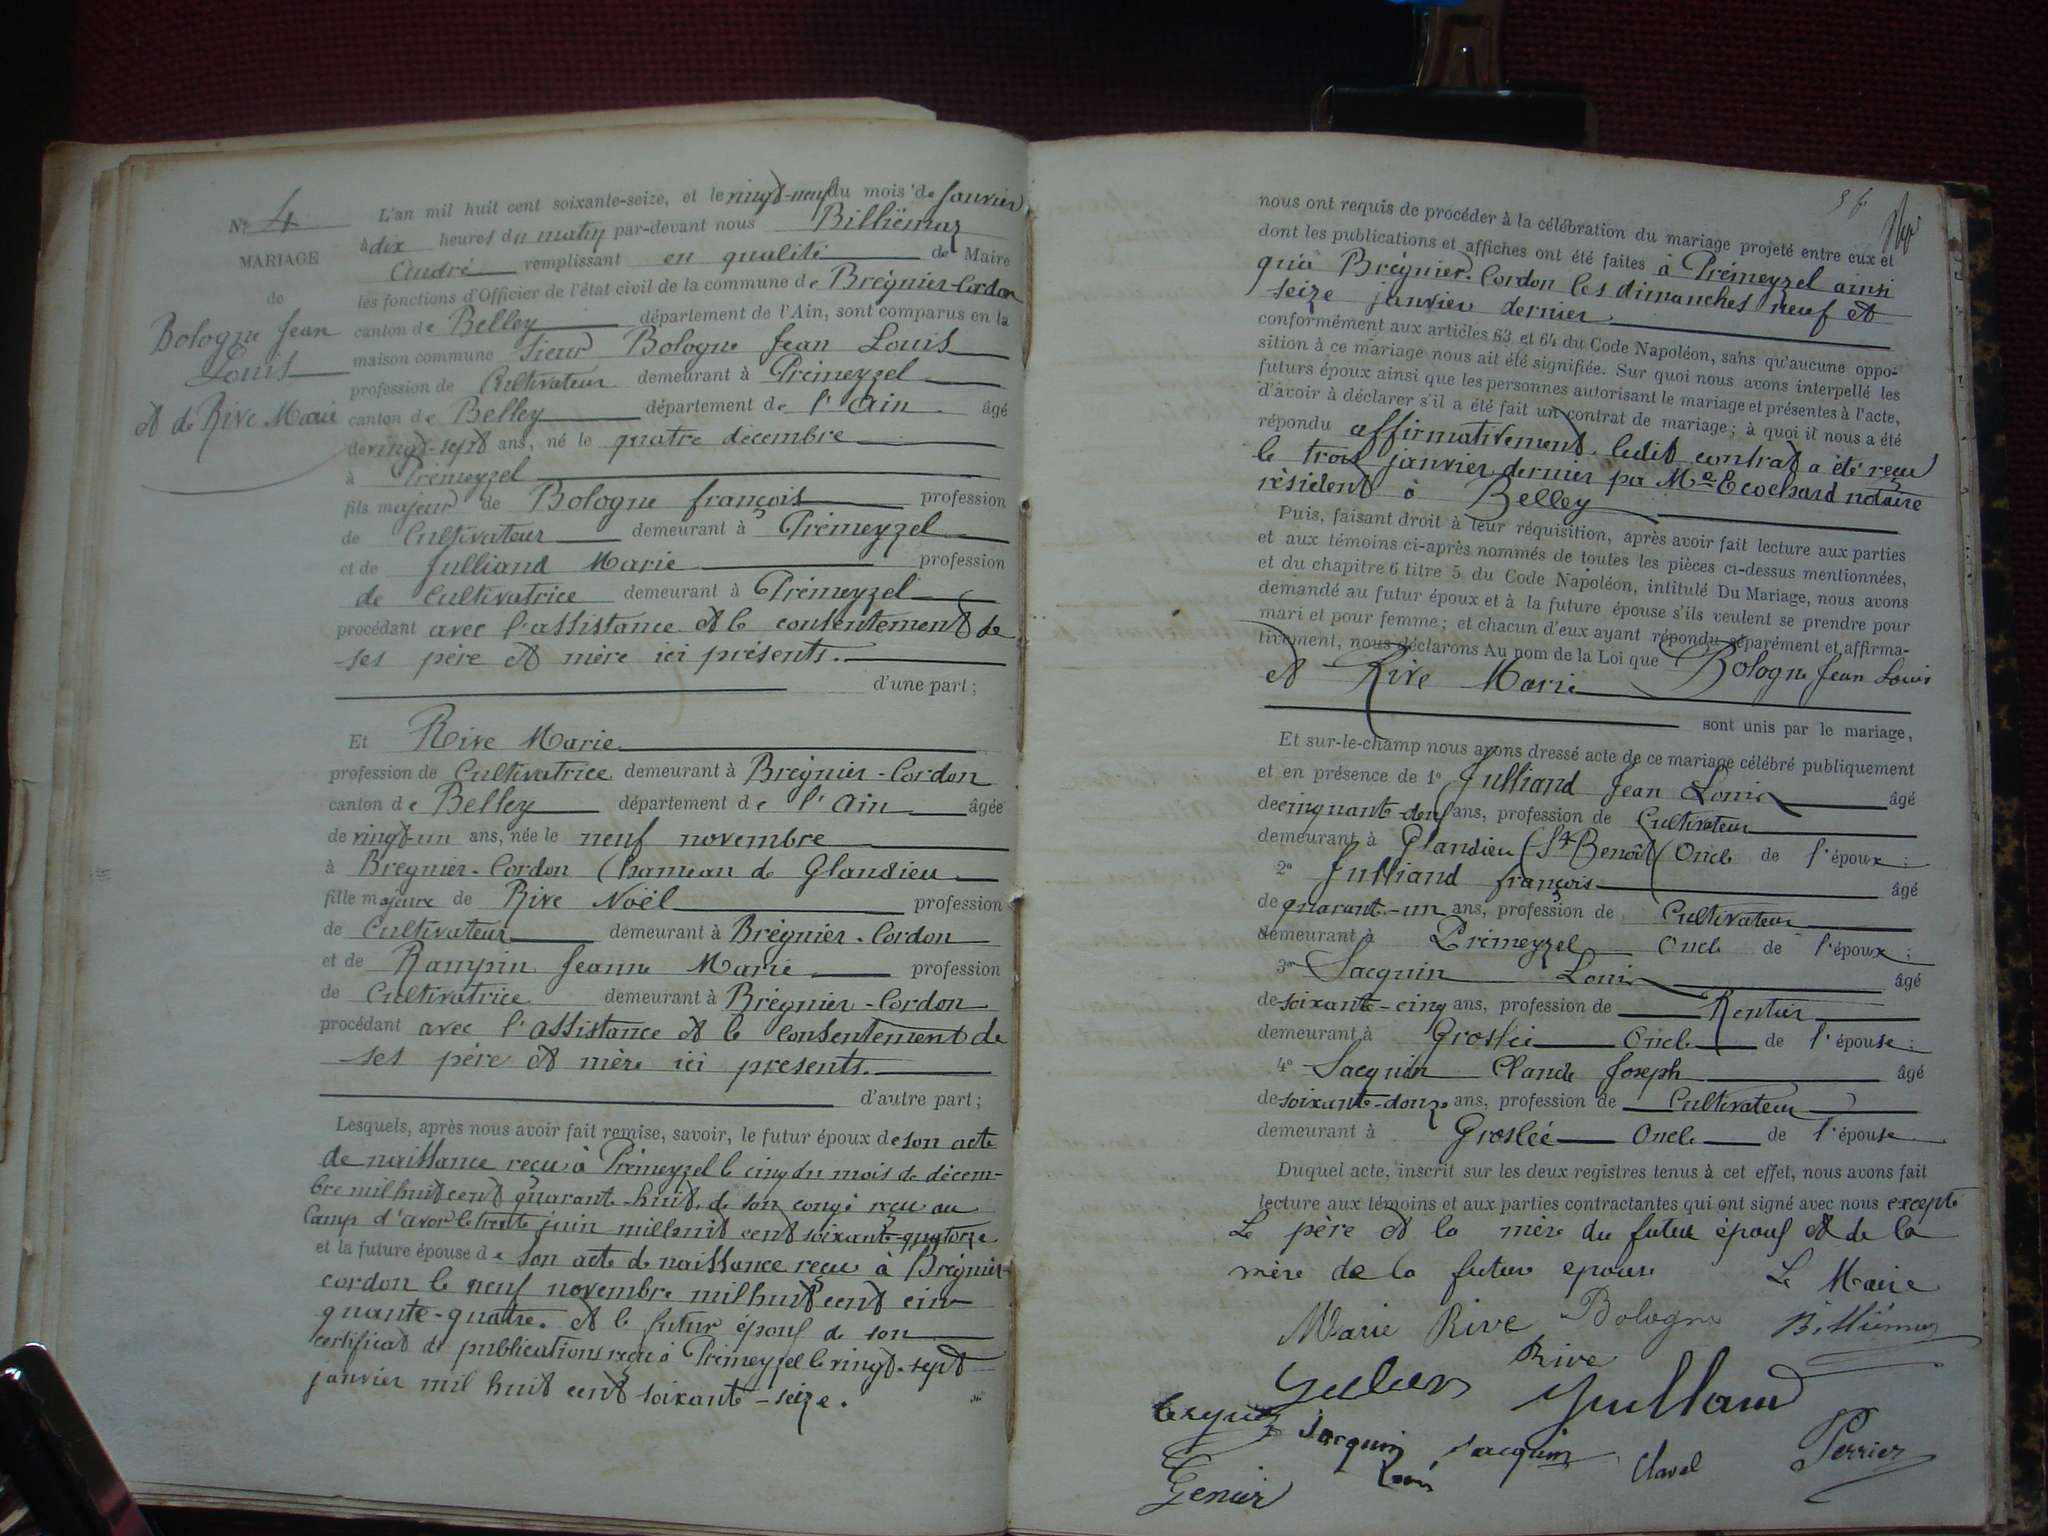 N° 4
MARIAGE
de
Bologne Jean
Louis
et de Rive Marie
L'an mil huit cent soixante-seize, et le vingt-neuf du mois de Janvier
à dix heures du matin par-devant nous Billiémaz
André remplissant en qualité de Maire
les fonctions d'Officier de l'état civil de la commune de Brégnier-Cordon
canton de Belley département de l'Ain, sont comparus en la
maison commune Sieur Bologne Jean Louis
profession de Cultivateur demeurant à Prémeyzel
canton de Belley département de l'Ain âgé
de vingt-sept ans, né le quatre décembre
à Prémeyzel
fils majeur de Bologne françois profession
de Cultivateur demeurant à Prémeyzel
et de Julliand Marie profession
de Cultivatrice demeurant à Prémeyzel
procédant avec l'assistance et le consentement de
ses père et mère ici présents.
d'une part;
Et Rive Marie
profession de Cultivatrice demeurant à Brégnier-Cordon
canton de Belley département de l'Ain âgée
de vingt-un ans, née le neuf novembre
à Brégnier-Cordon (hameau de Glandieu
fille majeure de Rive Noël profession
de Cultivateur demeurant à Brégnier-Cordon
et de Rampin Jeanne Marie profession
de Cultivatrice demeurant à Brégnier-Cordon
procédant avec l'assistance et le consentement de
ses père et mère ici presents.
d'autre part;
Lesquels, après nous avoir fait remise, savoir, le futur époux de son acte
de naissance reçu à Prémeyzel le cinq du mois de décem-
bre mil huit cent quarante-huit, de son congé reçu au
Camp d'avor le trente juin mil huit cent soixante-quatorze
et la future épouse de son acte de naissance reçu à Brégnier-
cordon le neuf novembre mil huit cent cin
quante-quatre. et le futur époux de son
certificat de publications reçu à Prémeyzel le vingt-sept
janvier mil huit cent soixante-seize.
nous ont requis de procéder à la célébration du mariage projeté entre eux et
dont les publications et affiches ont été faites à Prémeyzel ainsi
qu'à Brégnier-Cordon les dimanches neuf et
seize janvier dernier
conformément aux articles 63 et 64 du Code Napoléon, sans qu'aucune oppo-
sition à ce mariage nous ait été signifiée. Sur quoi nous avons interpellé les
futurs époux ainsi que les personnes autorisant le mariage et présentes à l'acte,
d'avoir à déclarer s'il a été fait un contrat de mariage; à quoi il nous a été
répondu affirmativement. ledit contrat a été reçu
le trois janvier dernier par Me Ecochard notaire
résident à Belley
Puis, faisant droit à leur réquisition, après avoir fait lecture aux parties
et aux témoins ci-après nommés de toutes les pièces ci-dessus mentionnées,
et du chapitre 6 titre 5 du Code Napoléon, intitulé Du Mariage, nous avons
demandé au futur époux et à la future épouse s'ils veulent se prendre pour
mari et pour femme; et chacun d'eux ayant répondu séparément et affirma-
tivement, nous déclarons Au nom de la Loi que Bologne Jean Louis
et Rive Marie
sont unis par le mariage,
Et sur-le-champ nous avons dressé acte de ce mariage célébré publiquement
et en présence de 1° Julliand Jean Louis âgé
de cinquante-deux ans, profession de Cultivateur
demeurant à Glandieu (St Benoît) Oncle de l'époux;
2° Julliand françois âgé
de quarante-un ans, profession de Cultivateur
demeurant à Prémeyzel Oncle de l'époux;
3° Jacquin Louis âgé
de soixante-cinq ans, profession de Rentier
demeurant à Groslée Oncle de l'épouse;
4° Jacquin Claude Joseph âgé
de soixante-douze ans, profession de Cultivateur
demeurant à Groslée Oncle de l'épouse
Duquel acte, inscrit sur les deux registres tenus à cet effet, nous avons fait
lecture aux témoins et aux parties contractantes qui ont signé avec nous excepté
Le père et la mère du futur époux et de la
mère de la futur epouse Le Maire
Marie Rive Bologne Billiémaz
Rive
Juilland
Jacquin Louis Jacquin Clavel Perrier